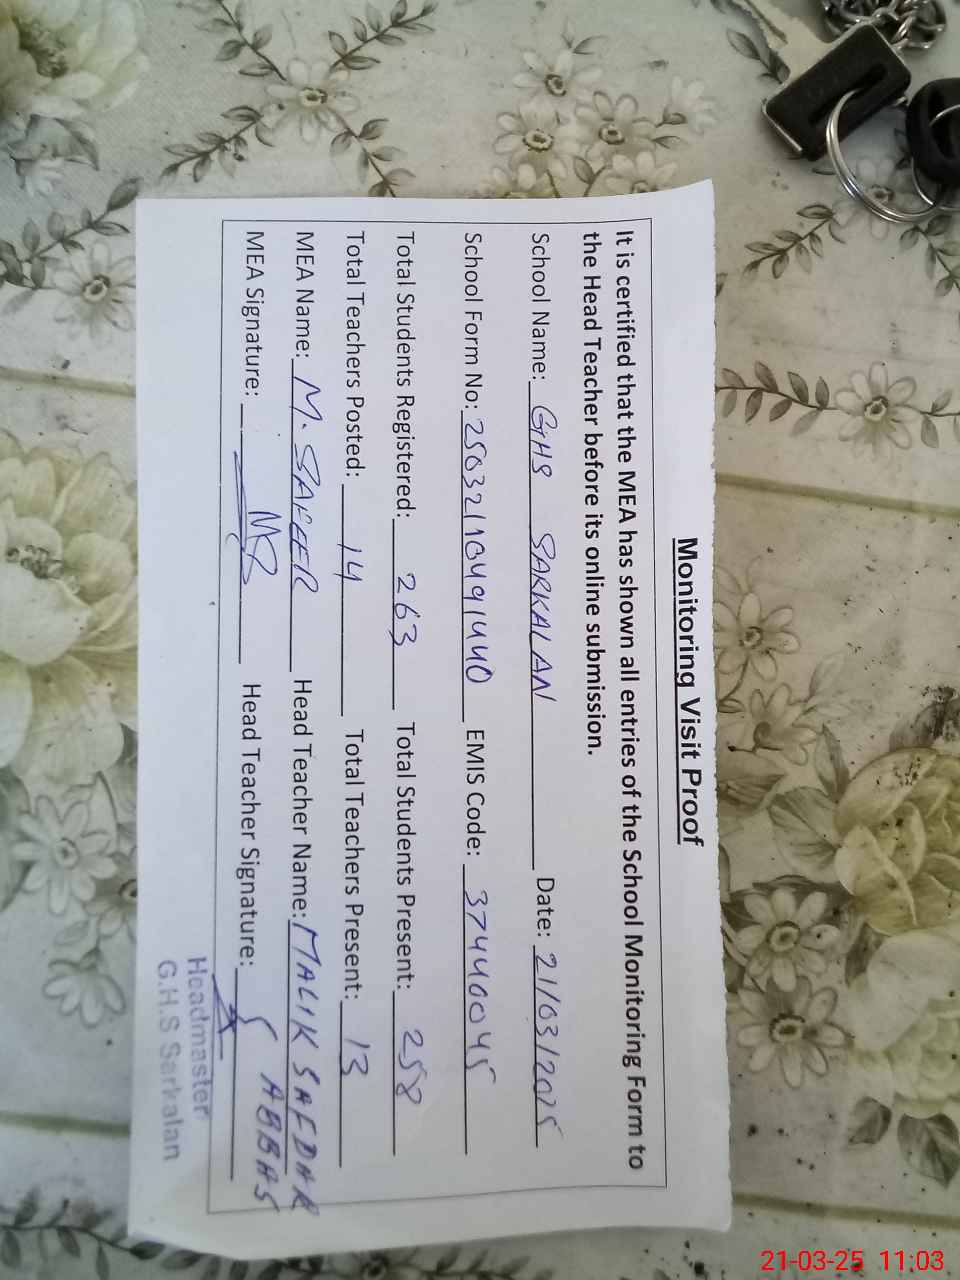 Monitoring Visit Proof
It is certified that the MEA has shown all entries of the School Monitoring Form to
the Head Teacher before its online submission.
School Name: GHS SARKALAN Date: 21/03/2025
School Form No: 25032110491440 EMIS Code: 37440045
Total Students Registered: 263 Total Students Present: 258
Total Teachers Posted: 14 Total Teachers Present: 13
MEA Name: M. SAFEER Head Teacher Name: MALIK SAFDAR
ABBAS
MEA Signature: Head Teacher Signature:
Headmaster
G.H.S Sarkalan
21-03-25 11:03